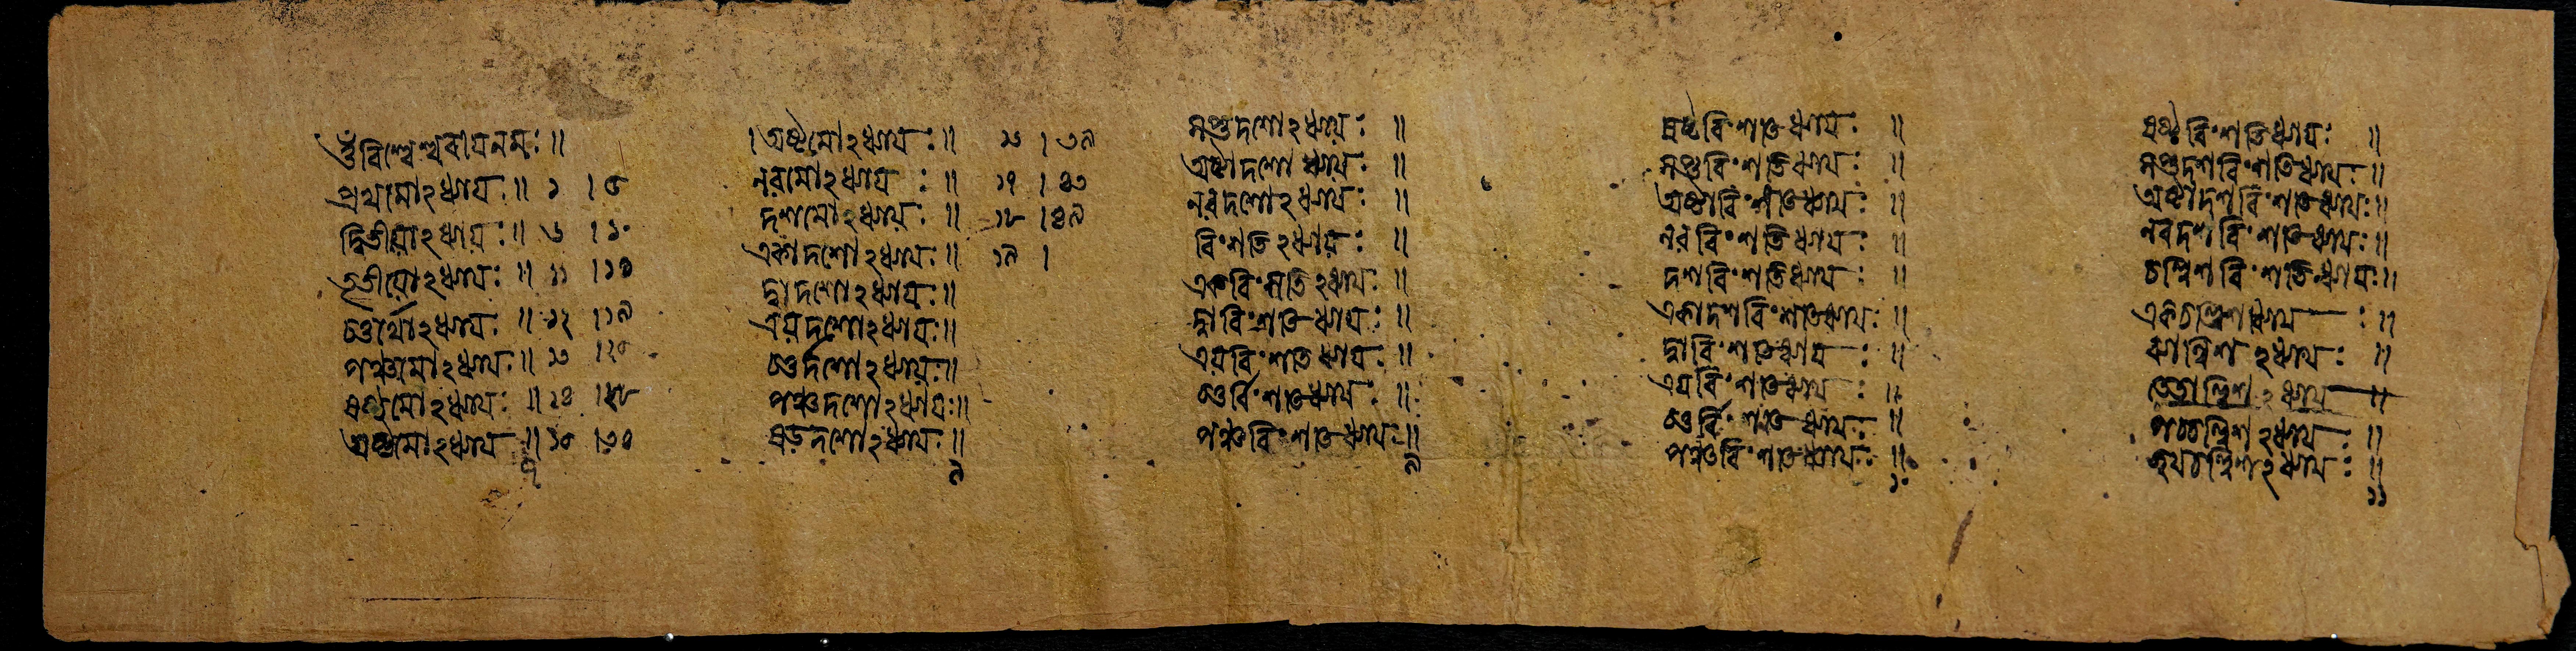 ওঁ বিশ্বেশ্বরায় নমঃ ॥
প্রথমোঽধ্যায়ঃ ॥ ১ ।
দ্বিতীয়োঽধ্যায়ঃ ॥ ৬ । ১০
তৃতীয়োঽধ্যায়ঃ ॥ ১১ । ১৪
চতুর্থোঽধ্যায়ঃ ॥ ১২ । ১৯
পঞ্চমোঽধ্যায়ঃ ॥ ১৩ ।
ষষ্ঠমোঽধ্যায়ঃ ॥ ১৪ ।
মোঽধ্যায় ॥
৭
। অষ্টমোঽধ্যায়ঃ ॥ ১৬ । ৩৯
নবমোঽধ্যায়ঃ ॥ ১৭ । ৪৩
দশমোঽধ্যায়ঃ ॥ ১৮ । ৪৯
একাদশোঽধ্যায়ঃ ॥ ১৯ ।
দ্বাদশোঽধ্যায়ঃ ॥
ত্রয়দশোঽধ্যায়ঃ ॥
চতুর্দশোঽধ্যায়ঃ ॥
পঞ্চদশোঽধ্যায়ঃ ॥
ষড়দশোঽধ্যায়ঃ ॥
৯
সপ্তদশোঽধ্যায়ঃ ॥
অষ্টাদশোধ্যায়ঃ ॥
নবদশোঽধ্যায়ঃ ॥
বিংশতিঽধ্যায়ঃ ॥
একবিংসতিঽধ্যায়ঃ ॥
দ্বাবিংশতিধ্যায়ঃ ॥
ত্রয়বিংশতিধ্যায়ঃ ॥
চতুর্বিংশতিধ্যায়ঃ ॥
পঞ্চবিংশতিধ্যায়ঃ ॥
৯
ষষ্ঠবিংশতিধ্যায়ঃ ॥
সপ্তবিংশতিধ্যায়ঃ ॥
অষ্টাবিংশতিধ্যায়ঃ ॥
নববিংশতিধ্যায়ঃ ॥
দশবিংশতিধ্যায়ঃ ॥
একাদশবিংশতিধ্যায়ঃ ॥
দ্বাবিংশতিধ্যায়ঃ ॥
ত্রয়বিংশতিধ্যায়ঃ ॥
চতুর্বিংশতিধ্যায়ঃ ॥
পঞ্চবিংশতিধ্যায়ঃ ॥
১০
ষষ্ঠবিংশতিধ্যায়ঃ ॥
সপ্তদশবিংশতিধ্যায়ঃ ॥
অষ্টাদশবিংশতিধ্যায়ঃ ॥
নবদশবিংশতিধ্যায়ঃ ॥
বিংশতিধ্যায়ঃ ॥
ধ্যায়ঃ ॥
ঽধ্যায়ঃ ॥
ঽধ্যায় ॥
ঽধ্যায়ঃ ॥
ঽধ্যায়ঃ ॥
১১